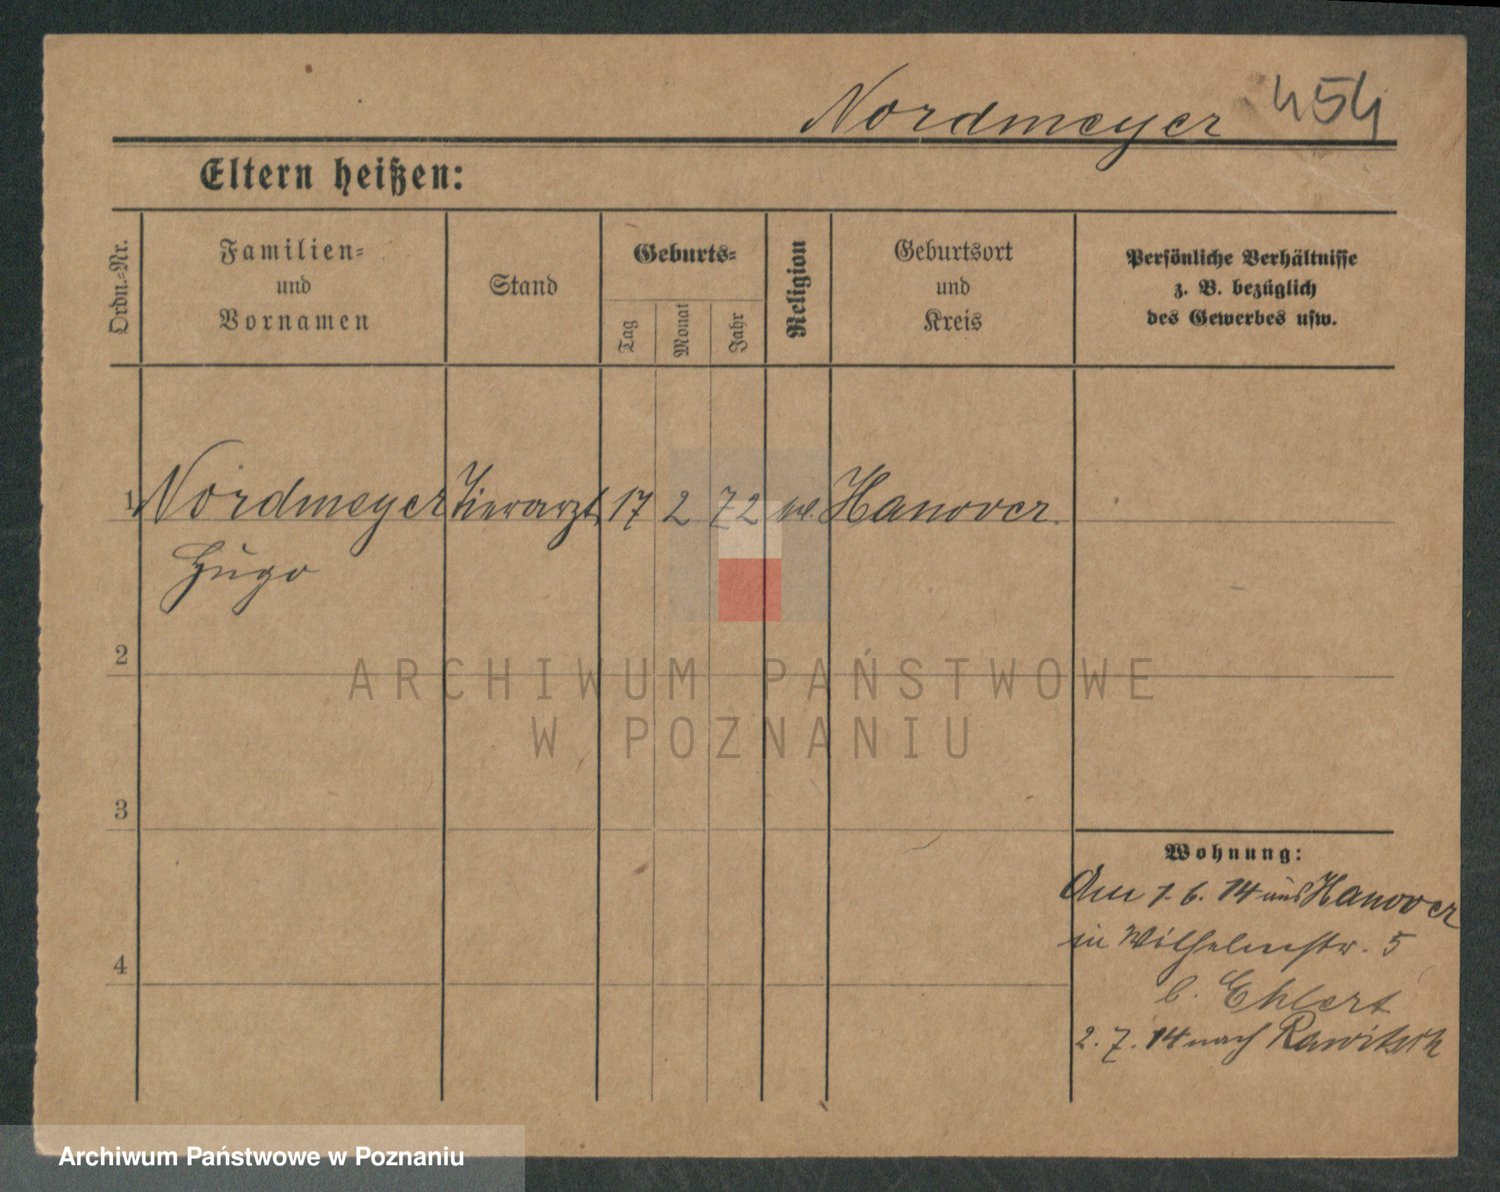 Nordmeyer 454
Eltern heißen:
Ordn.-Nr.
Familien-
und
Vornamen
Stand
Geburts-
Tag
Monat
Jahr
Religion
Geburtsort
und
Kreis
Persönliche Verhältnisse
z. B. bezüglich
des Gewerbes usw.
1 Nordmeyer Tierarzt 17 2 72 Hanover.
Hugo
2
3
4
ARCHIWUM PAŃSTWOWE
W POZNANIU
Wohnung:
Am 1. 6. 14 aus Hanover
in Wilhelmstr. 5
b. Ehlert
2. 7. 14 nach Rawitsch
Archiwum Państwowe w Poznaniu